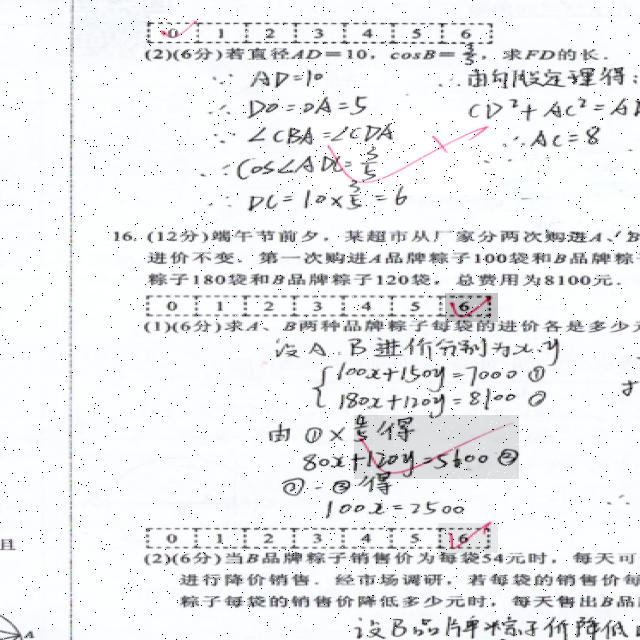 0 1 2 3 4 5 6
(2)(6分)若直径AD=10, cosB=3/5, 求FD的长.
∵ AD=10 ∴由勾股定理得:
∴ DO=OA=5 CD²+AC²=A
∵ ∠CBA=∠CDA ∴AC=8
∴COS∠ADC=3/5
∴DC=10×3/5=6
16. (12分)端午节前夕, 某超市从厂家分两次购进A、
进价不变. 第一次购进A品牌粽子100袋和B品牌粽
粽子180袋和B品牌粽子120袋, 总费用为8100元.
0 1 2 3 4 5 6
(1)(6分)求A、B两种品牌粽子每袋的进价各是多少
设A、B进价分别为x、y
100x+150y=7000 ①
180x+120y=8100 ②
由①×4/5得
80x+120y=5600 ③
②-③得
100x=2500
0 1 2 3 4 5 6
(2)(6分)当B品牌粽子销售价为每袋54元时, 每天可
进行降价销售. 经市场调研, 若每袋的销售价每
粽子每袋的销售价降低多少元时, 每天售出B品
且
A
设B品牌粽子价降低